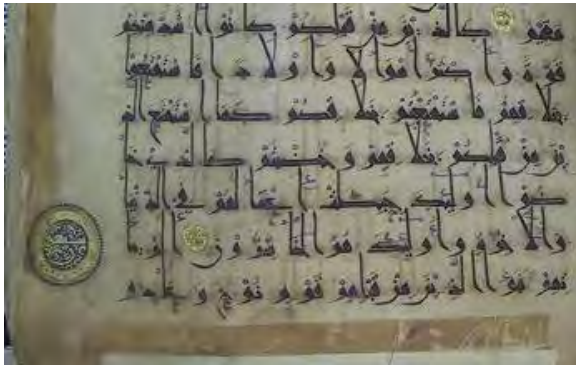 مقيم كالذين من قبلكم كانوا أشد منكم
قوة وأكثر أموالا وأولادا فاستمتعوا
بخلاقهم فاستمتعتم بخلاقكم كما استمتع الذ
ين من قبلكم بخلاقهم وخضتم كالذي خا
ضوا أولئك حبطت أعمالهم في الدنيا
والآخرة وأولئك هم الخاسرون ألم يأ
تهم نبأ الذين من قبلهم قوم نوح وعاد و